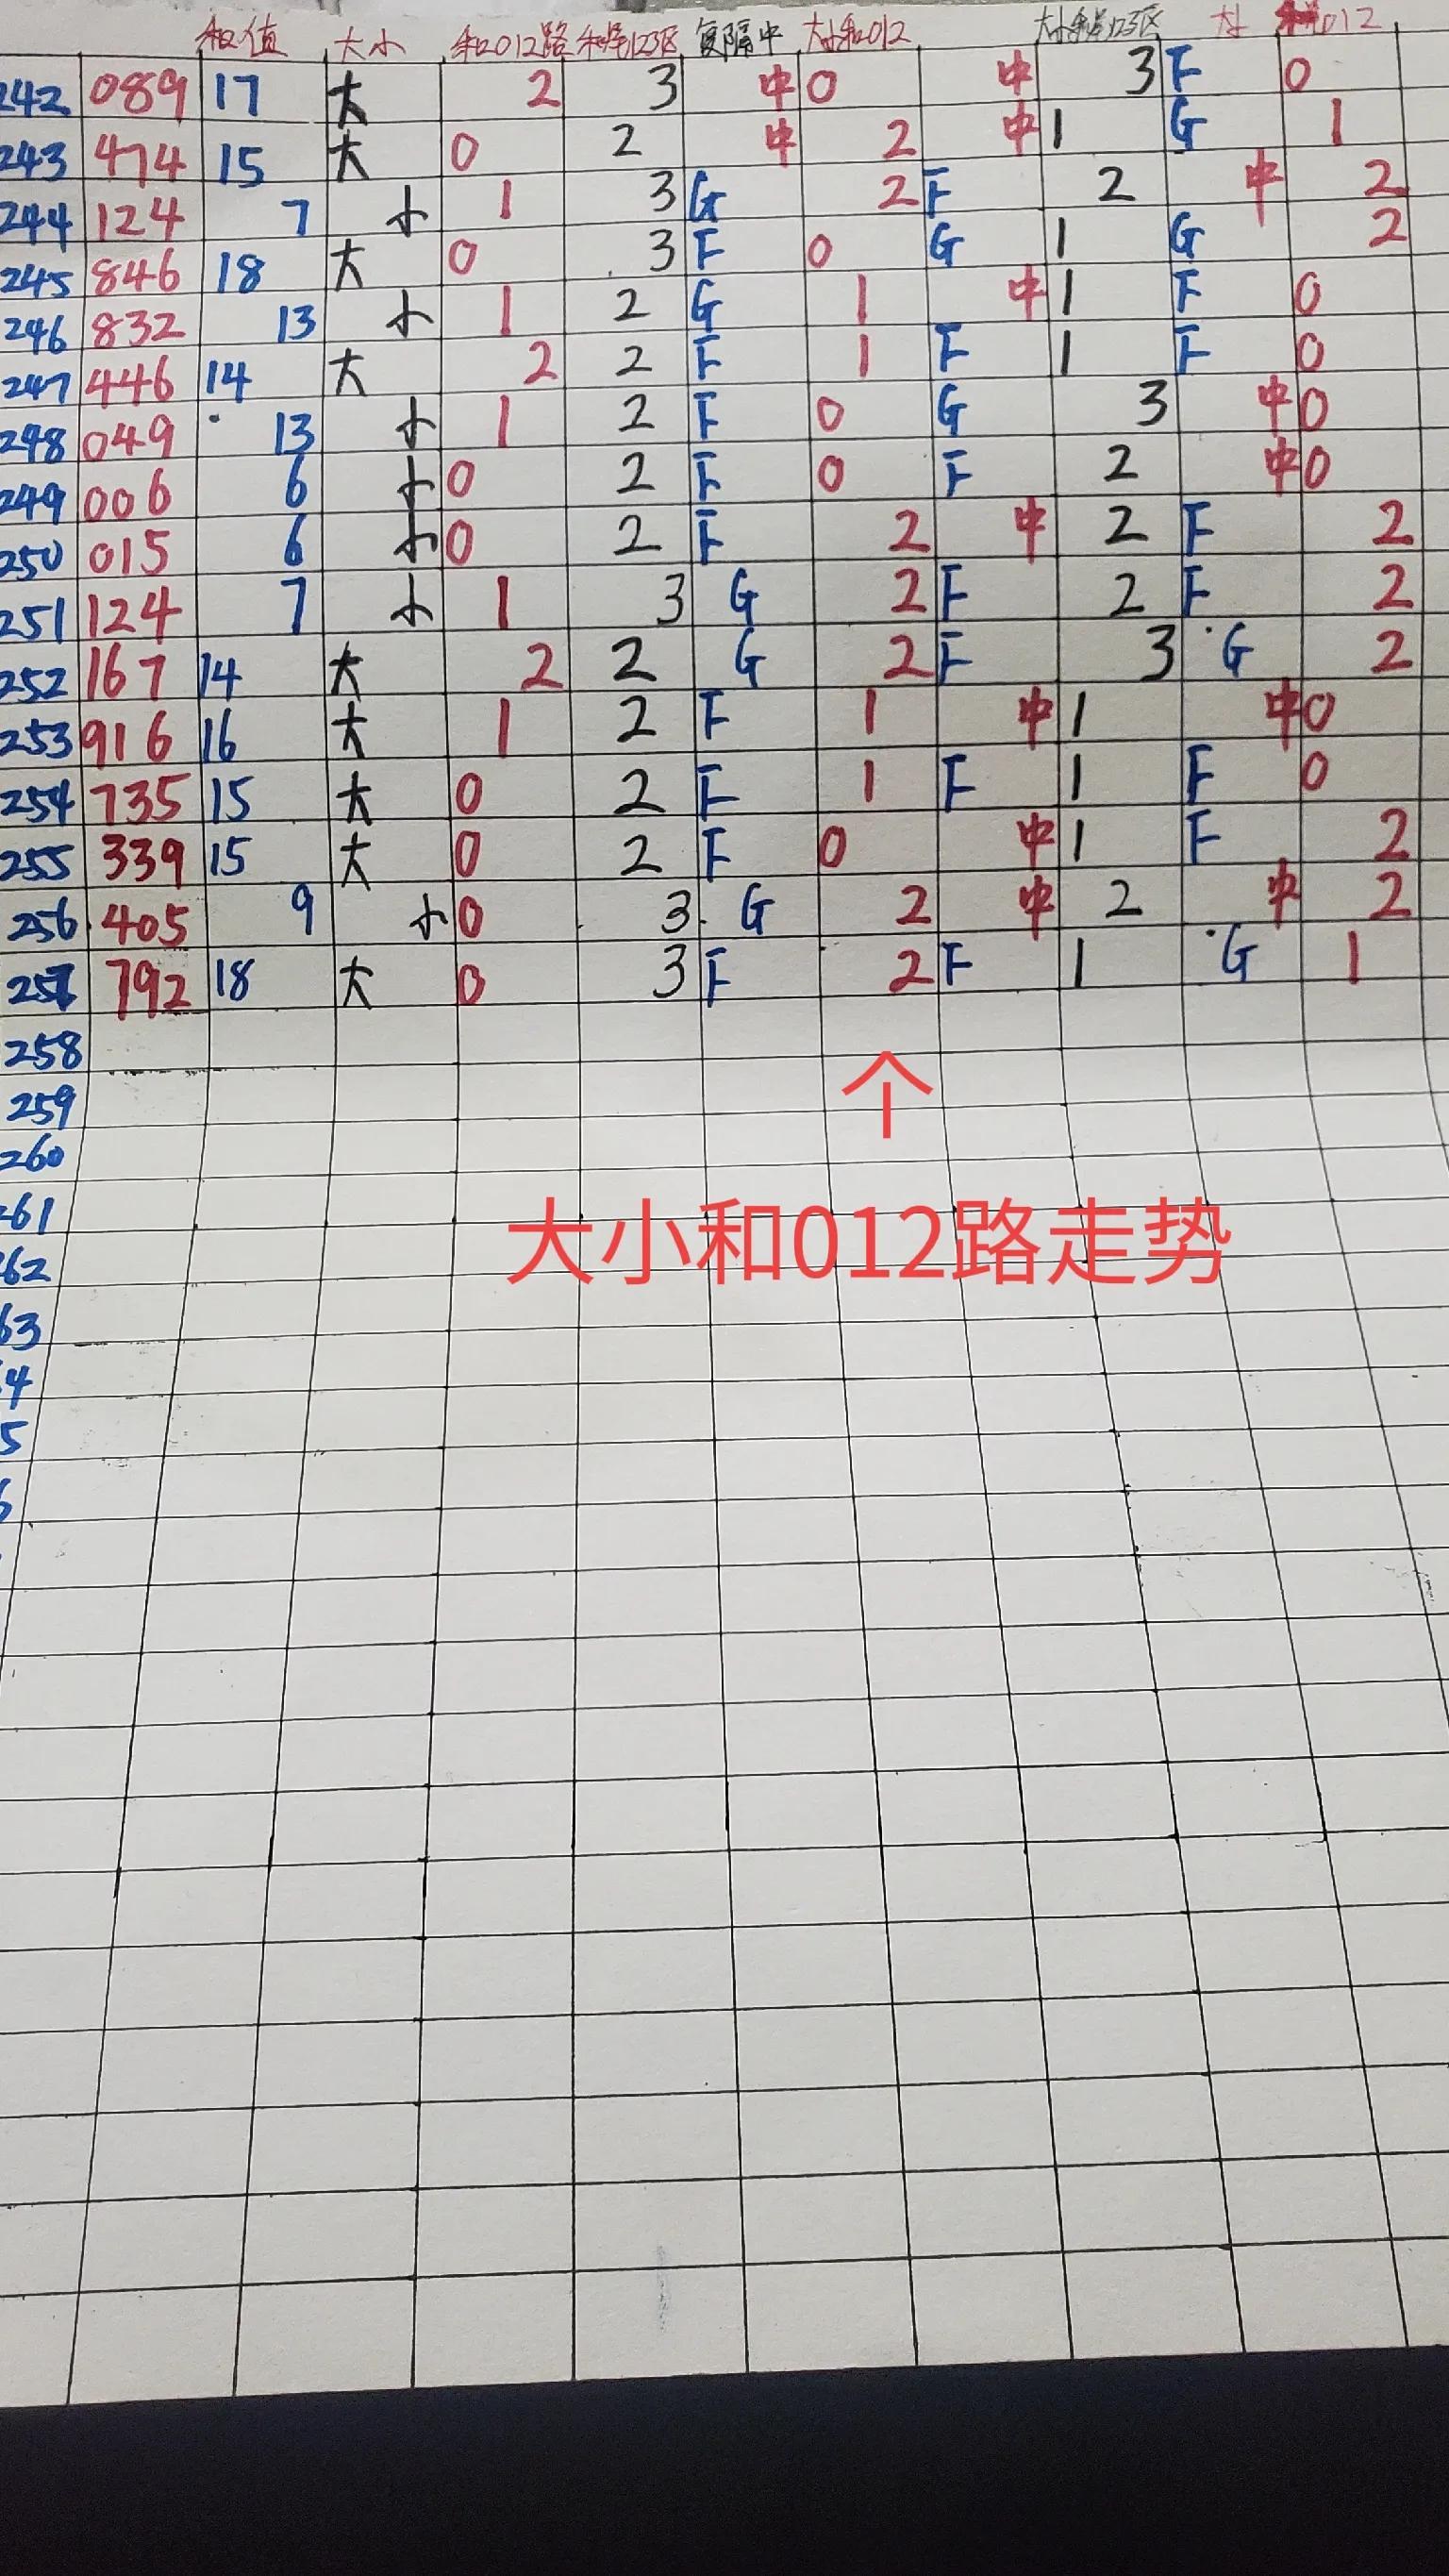 和值 大小 和012路 和尾123区 复隔中 大小和012 大小和尾123区 大小 012
242 089 17 大 2 3 中 0 中 3 F 0
243 474 15 大 0 2 中 2 中 1 G 1
244 124 7 小 1 3 G 2 F 2 中 2
245 846 18 大 0 3 F 0 G 1 G 2
246 832 13 小 1 2 G 1 中 1 F 0
247 446 14 大 2 2 F 1 F 1 F 0
248 049 13 小 1 2 F 0 G 3 中 0
249 006 6 小 0 2 F 0 F 2 中 0
250 015 6 小 0 2 F 2 中 2 F 2
251 124 7 小 1 3 G 2 F 2 F 2
252 167 14 大 2 2 G 2 F 3 G 2
253 916 16 大 1 2 F 1 中 1 中 0
254 735 15 大 0 2 F 1 F 1 F 0
255 339 15 大 0 2 F 0 中 1 F 2
256 405 9 小 0 3 G 2 中 2 中 2
257 792 18 大 0 3 F 2 F 1 G 1
258
259
260
61
62
63
4
5
个
大小和012路走势